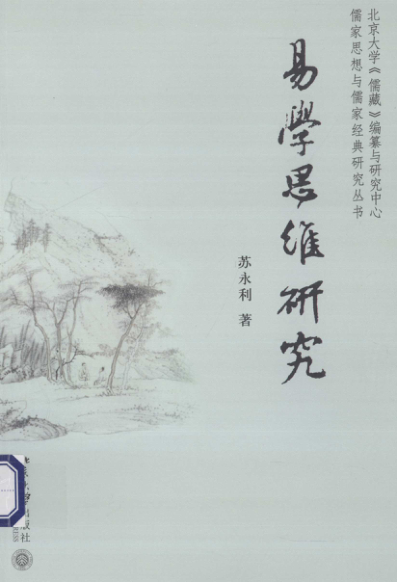 北京大学《儒藏》编纂与研究中心
儒家思想与儒家经典研究丛书
易學思维研究
苏永利 著
大学出版社